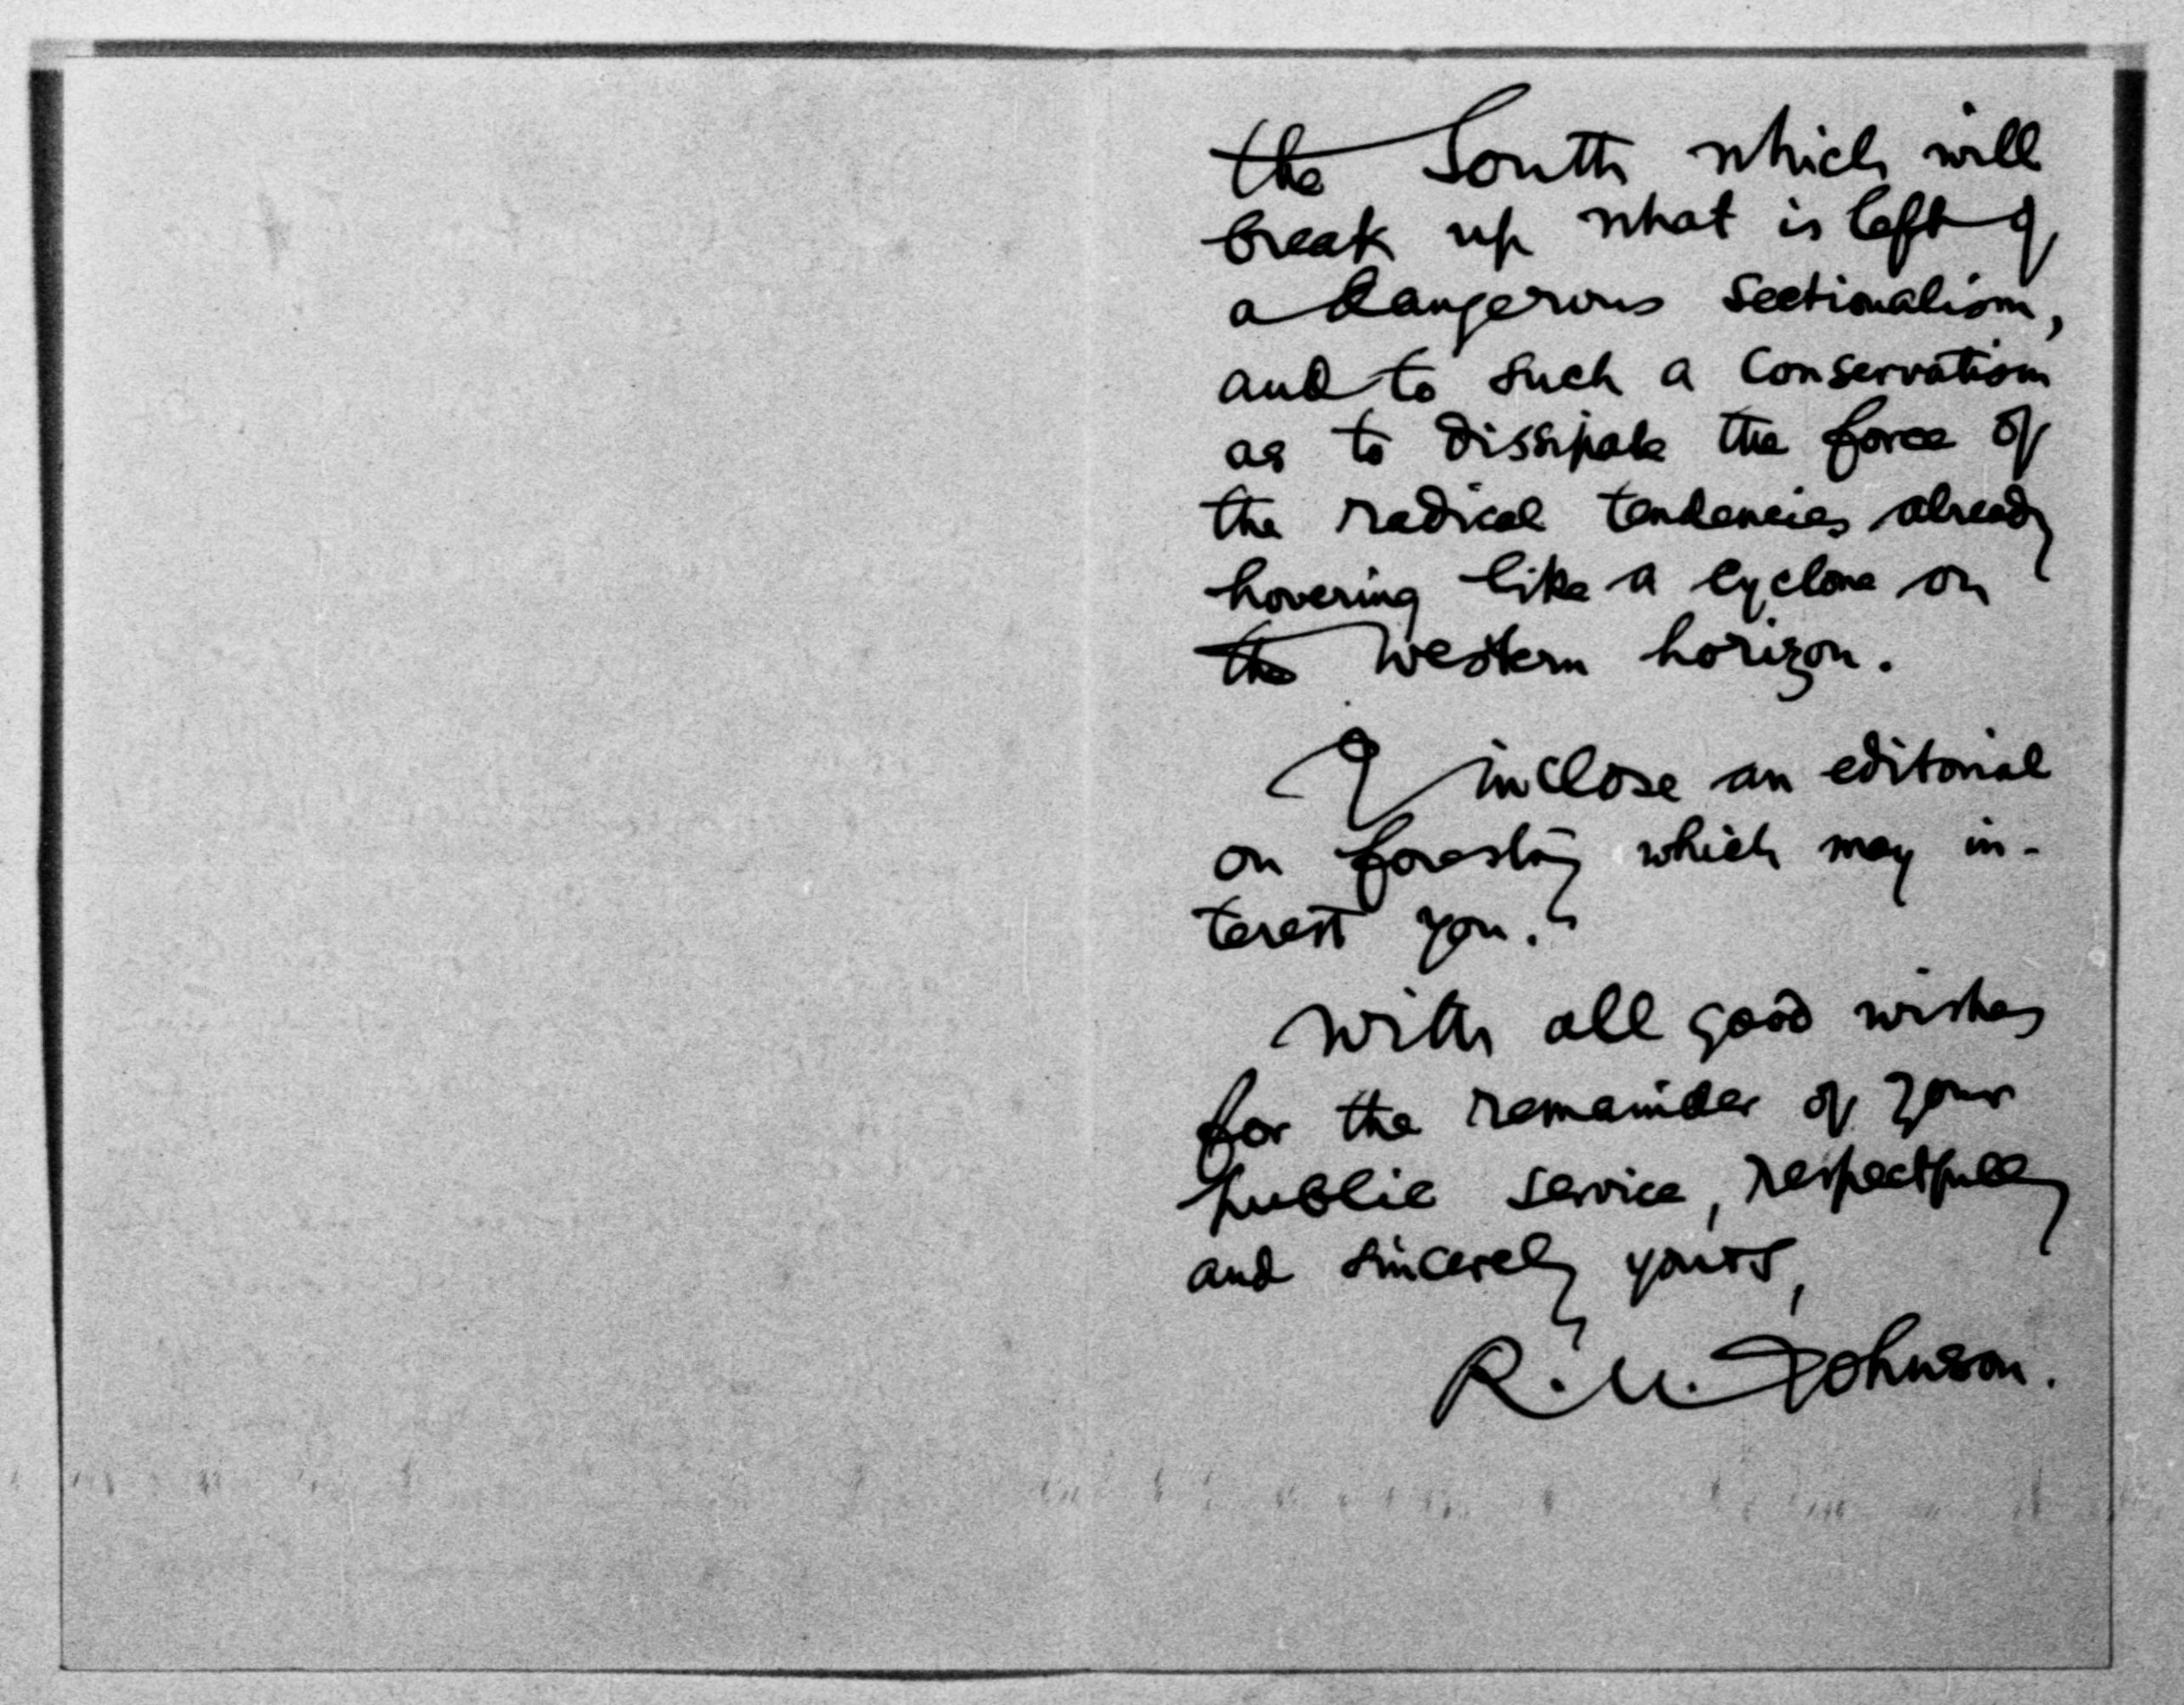 the South which will
break up what is left of
a dangerous sectionalism,
and to such a conservatism
as to dissipate the force of
the radical tendencies already
hovering like a cyclone on
the western horizon.
I inclose an editorial
on forestry which may in-
terest you.
With all good wishes
for the remainder of your
public service, respectfully
and sincerely yours,
R. U. Johnson.